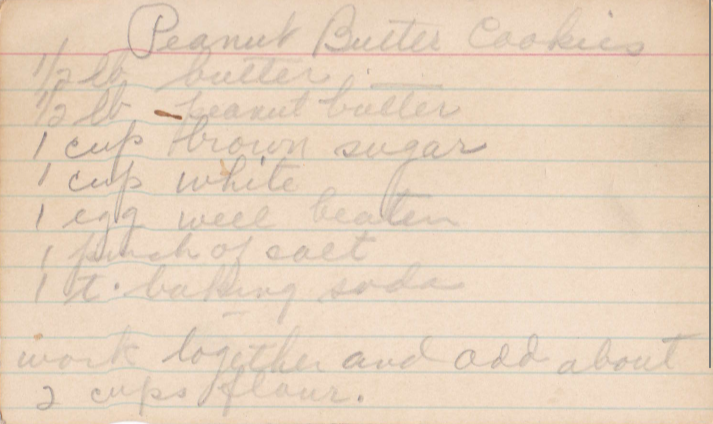 Peanut Butter Cookies
1/2 lb butter.
1/2 lb peanut butter
1 cup brown sugar
1 cup white
1 egg well beaten
1 pinch of salt
1 t. baking soda
work together and add about
2 cups flour.